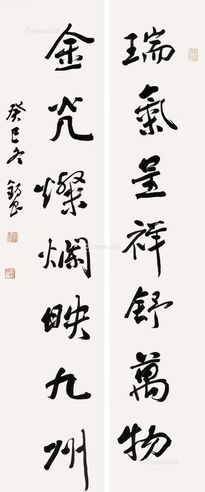 瑞氣呈祥舒萬物
金光燦爛映九州
癸巳冬